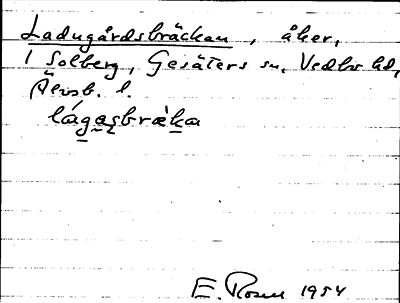 Ladugårdsbräckan, åker,
1 Solberg, Gesäters sn, Vedbo hd,
Älvsb. l.
lágasbrækа
E. Rosell 1954